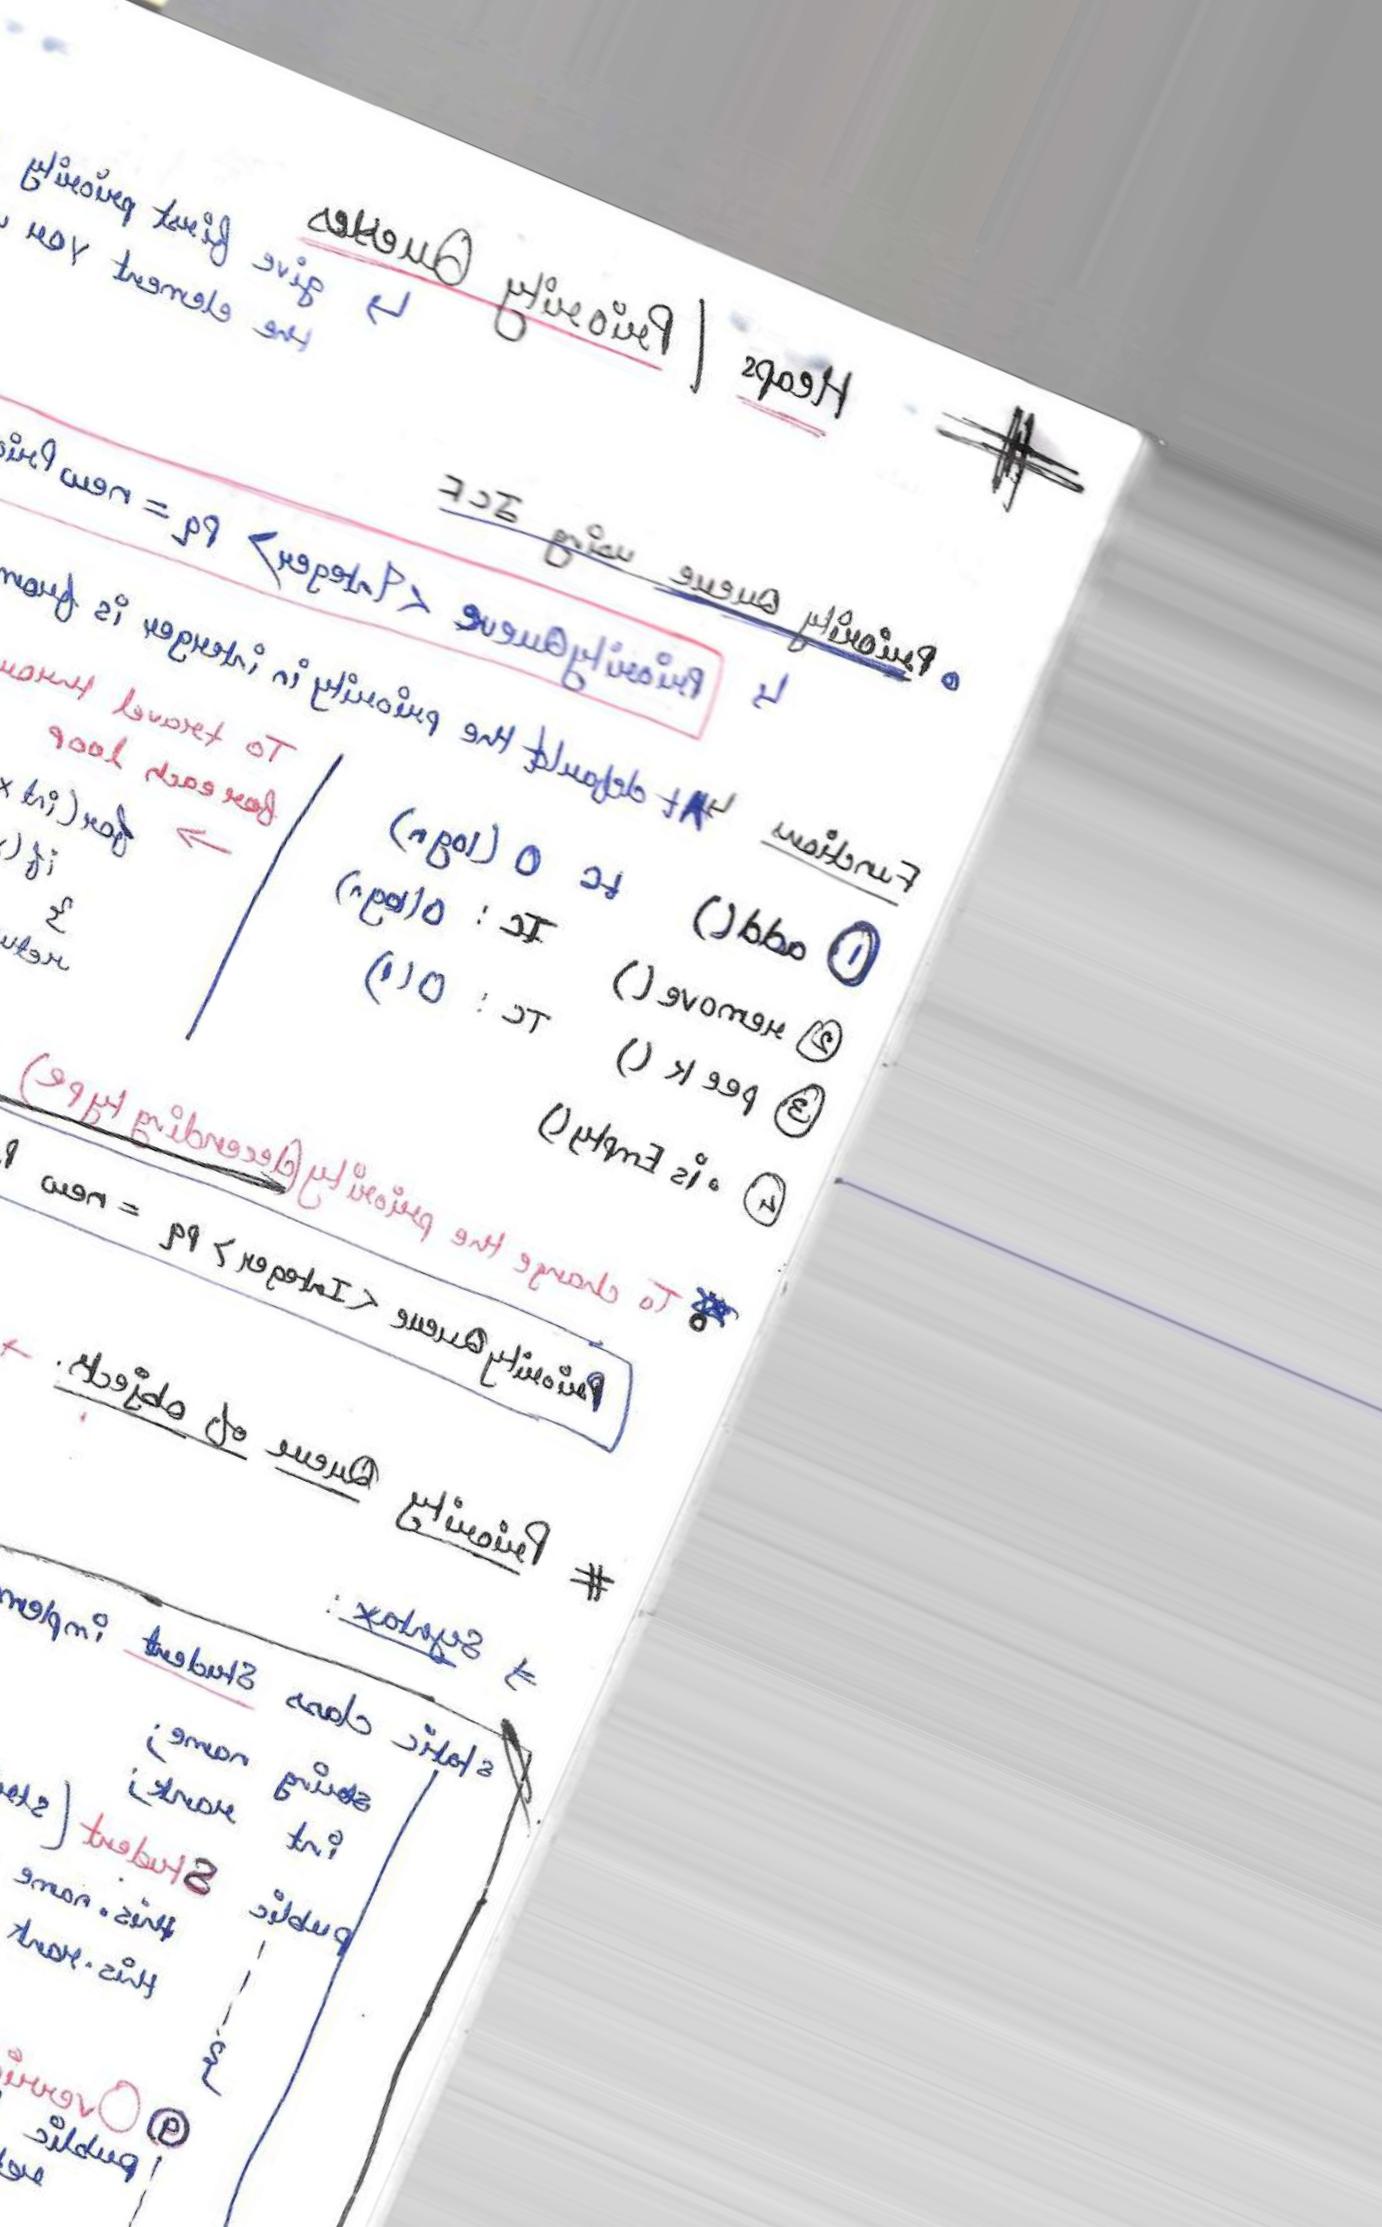 # Heaps | Priority Queues
↳ give first priority
the element you
• Priority Queue using JCF
↳ PriorityQueue <Integer> Pq = new Prio
↳ At default the priority in interger is from
Function
① add() tc O(logn)
② remove() Tc : O(logn)
③ peek() Tc : O(1)
④ .isEmpty()
To travel throu
for each loop
→ for(int x
if(
}
retu
* To change the priority (decending type)
PriorityQueue <Integer> Pq = new P
# Priority Queue of objects. →
→ Syntax :
static class Student implem
string name;
int rank;
public Student (stri
this.name
this.rank
}
@ Overri
public
re